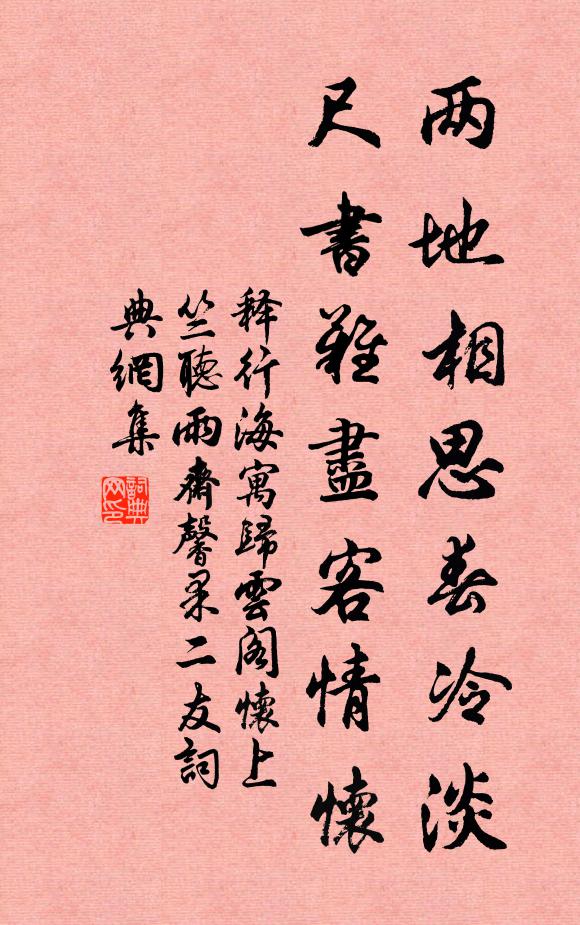 两地相思春冷淡
尺書難盡客情懷
释行海寓歸雲阁懷上
竺聽雨齋馨杲二友詞
典網集
詞典网印